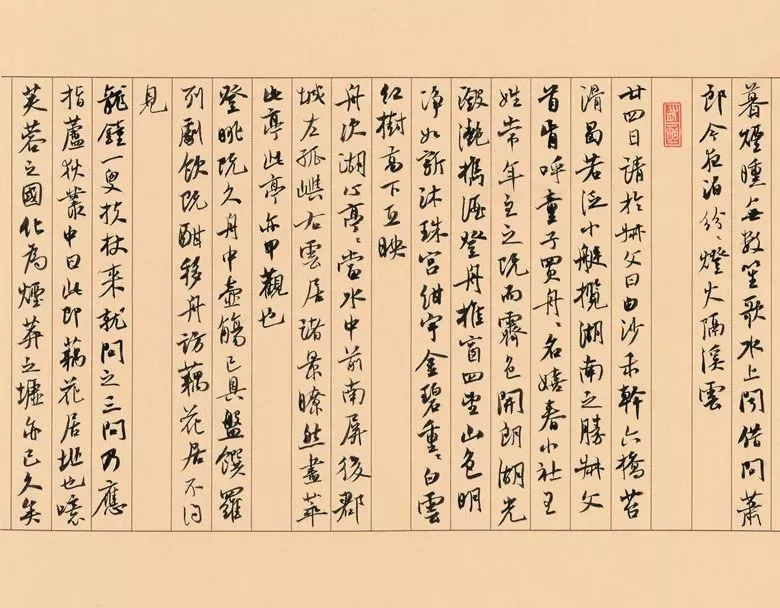 暮煙曛無數笙歌水上聞借問蕭
郎今夜泊紛〻燈火隔溪雲
廿四日請於叔父曰白沙未幹六橋苔
滑曷若泛小艇攬湖南之勝叔父
首肯呼童子買舟〻名嬉春小社王
姓常年主之既而霽色開朗湖光
瀲灩攜酒登舟推窗四望山色明
淨如新沐珠宮紺宇金碧重〻白雲
紅樹高下互映
舟次湖心亭〻當水中前南屏後郡
城左孤嶼右雲居諸景瞭然盡萃
此亭此亭亦甲觀也
登眺既久舟中壺觴已具盤饌羅
列劇飲既酣移舟訪藕花居不得
見
龍鍾一叟扶杖來就問之三問乃應
指蘆荻叢中曰此即藕花居址也噫
芙蓉之國化為煙莽之墟亦已久矣